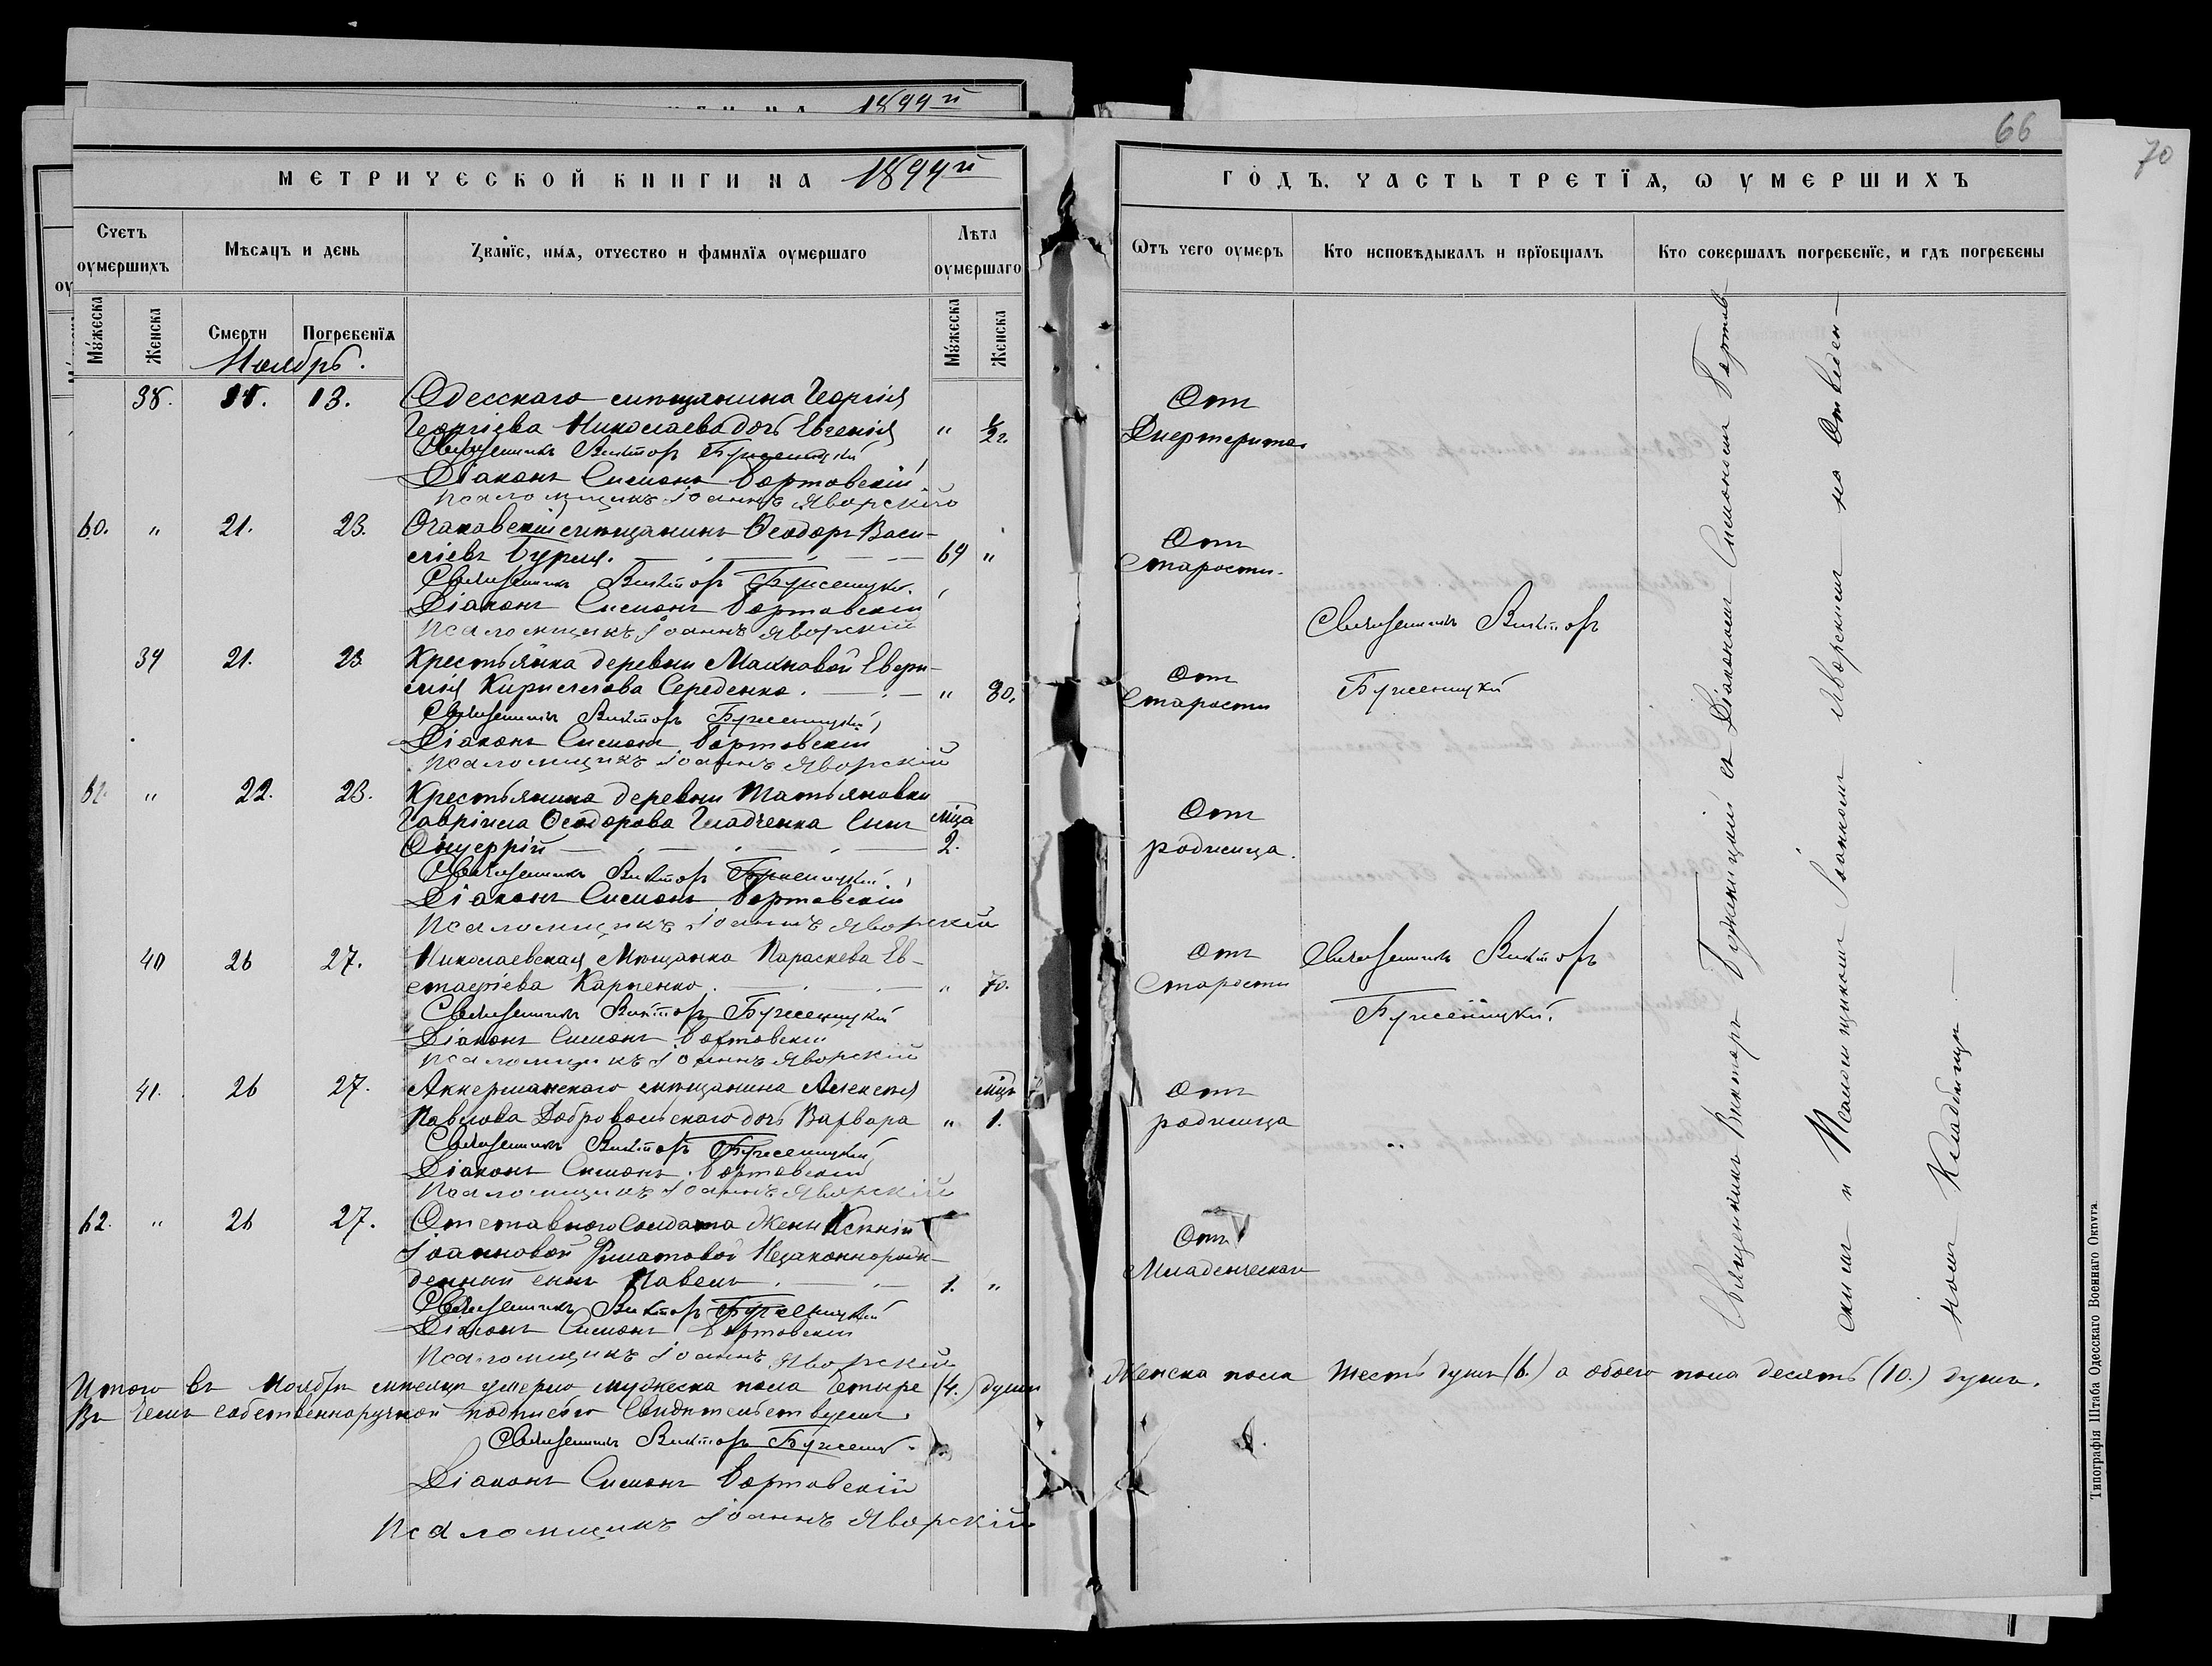 1899й
МЕТРИЧЕСКОЙ КНИГИ НА 1899й
Счетъ оумершихъ
Мѣсяцъ и день
Званїе, имя, отчество и фамилїя оумершаго
Лѣта оумершаго
Мужеска
Женска
Смерти
Погребенїя
Мужеска
Женска
Ноябрь.
38. 11. 13. Одесскаго мѣщанина Георгія
Георгіева Николаева дочь Евгенія " ½ г.
Священникъ Викторъ Буженицкій
Діаконъ Симеонъ Бортовскій
Псаломщикъ Іоаннъ Яворскій
60. " 21. 23. Очаковскій мѣщанинъ Ѳеодоръ Васи-
ліевъ Бурля. 69 "
Священникъ Викторъ Буженицкій
Діаконъ Симеонъ Бортовскій
Псаломщикъ Іоаннъ Яворскій
39 21. 23. Крестьянка деревни
Кириллова Середенко. " 80.
Священникъ Викторъ Буженицкій
Діаконъ Симеонъ Бортовскій
Псаломщикъ Іоаннъ Яворскій
61. " 22. 23. Крестьянина деревни Татьяновки
Гавріила Ѳеодорова Гладченка сынъ мѣца
Онуфрій 2.
Священникъ Викторъ Буженицкій
Діаконъ Симеонъ Бортовскій
Псаломщикъ Іоаннъ Яворскій
40 26 27. Николаевская мѣщанка Параскева Ев-
стафіева Карпенко. " 70.
Священникъ Викторъ Буженицкій
Діаконъ Симеонъ Бортовскій
Псаломщикъ Іоаннъ Яворскій
41. 26 27. Аккерманскаго мѣщанина Алексѣя мѣцъ
Павлова Добровольскаго дочь Варвара " 1.
Священникъ Викторъ Буженицкій
Діаконъ Симеонъ Бортовскій
Псаломщикъ Іоаннъ Яворскій
62. " 26 27. Отставного солдата жены Ксеніи
Іоанновой Незаконнорож-
денный сынъ Павелъ. 1. "
Священникъ Викторъ Буженицкій
Діаконъ Симеонъ Бортовскій
Псаломщикъ Іоаннъ Яворскій
Итого въ Ноябрѣ мѣсяцѣ умерло мужеска пола четыре (4.) души
Въ чемъ собственноручной подписью свидѣтельствуемъ.
Священникъ Викторъ Бужениц
Діаконъ Симеонъ Бортовскій
Псаломщикъ Іоаннъ Яворскій
66
70
ГОДЪ, ЧАСТЬ ТРЕТЇЯ, Ѡ УМЕРШИХЪ
Ѿтъ чего оумеръ
Кто исповѣдывалъ и прїобщалъ
Кто совершалъ погребенїе, и гдѣ погребены
Отъ
Дифтерита
Отъ
Старости.
Священникъ Викторъ
Буженицкій
Отъ
Старости
Отъ
родимца.
Отъ
Старости
Священникъ Викторъ
Буженицкій.
Отъ
родимца "
Отъ
Младенческой
Священникъ Викторъ Буженицкій съ Діакономъ Симеономъ Бортов-
скимъ и Псаломщикомъ Іоанномъ Яворскимъ на Отведен-
номъ Кладбищѣ
Женска пола шесть душъ (6.) а обоего пола десять (10.) душъ.
Типографія Штаба Одесскаго Военнаго Округа